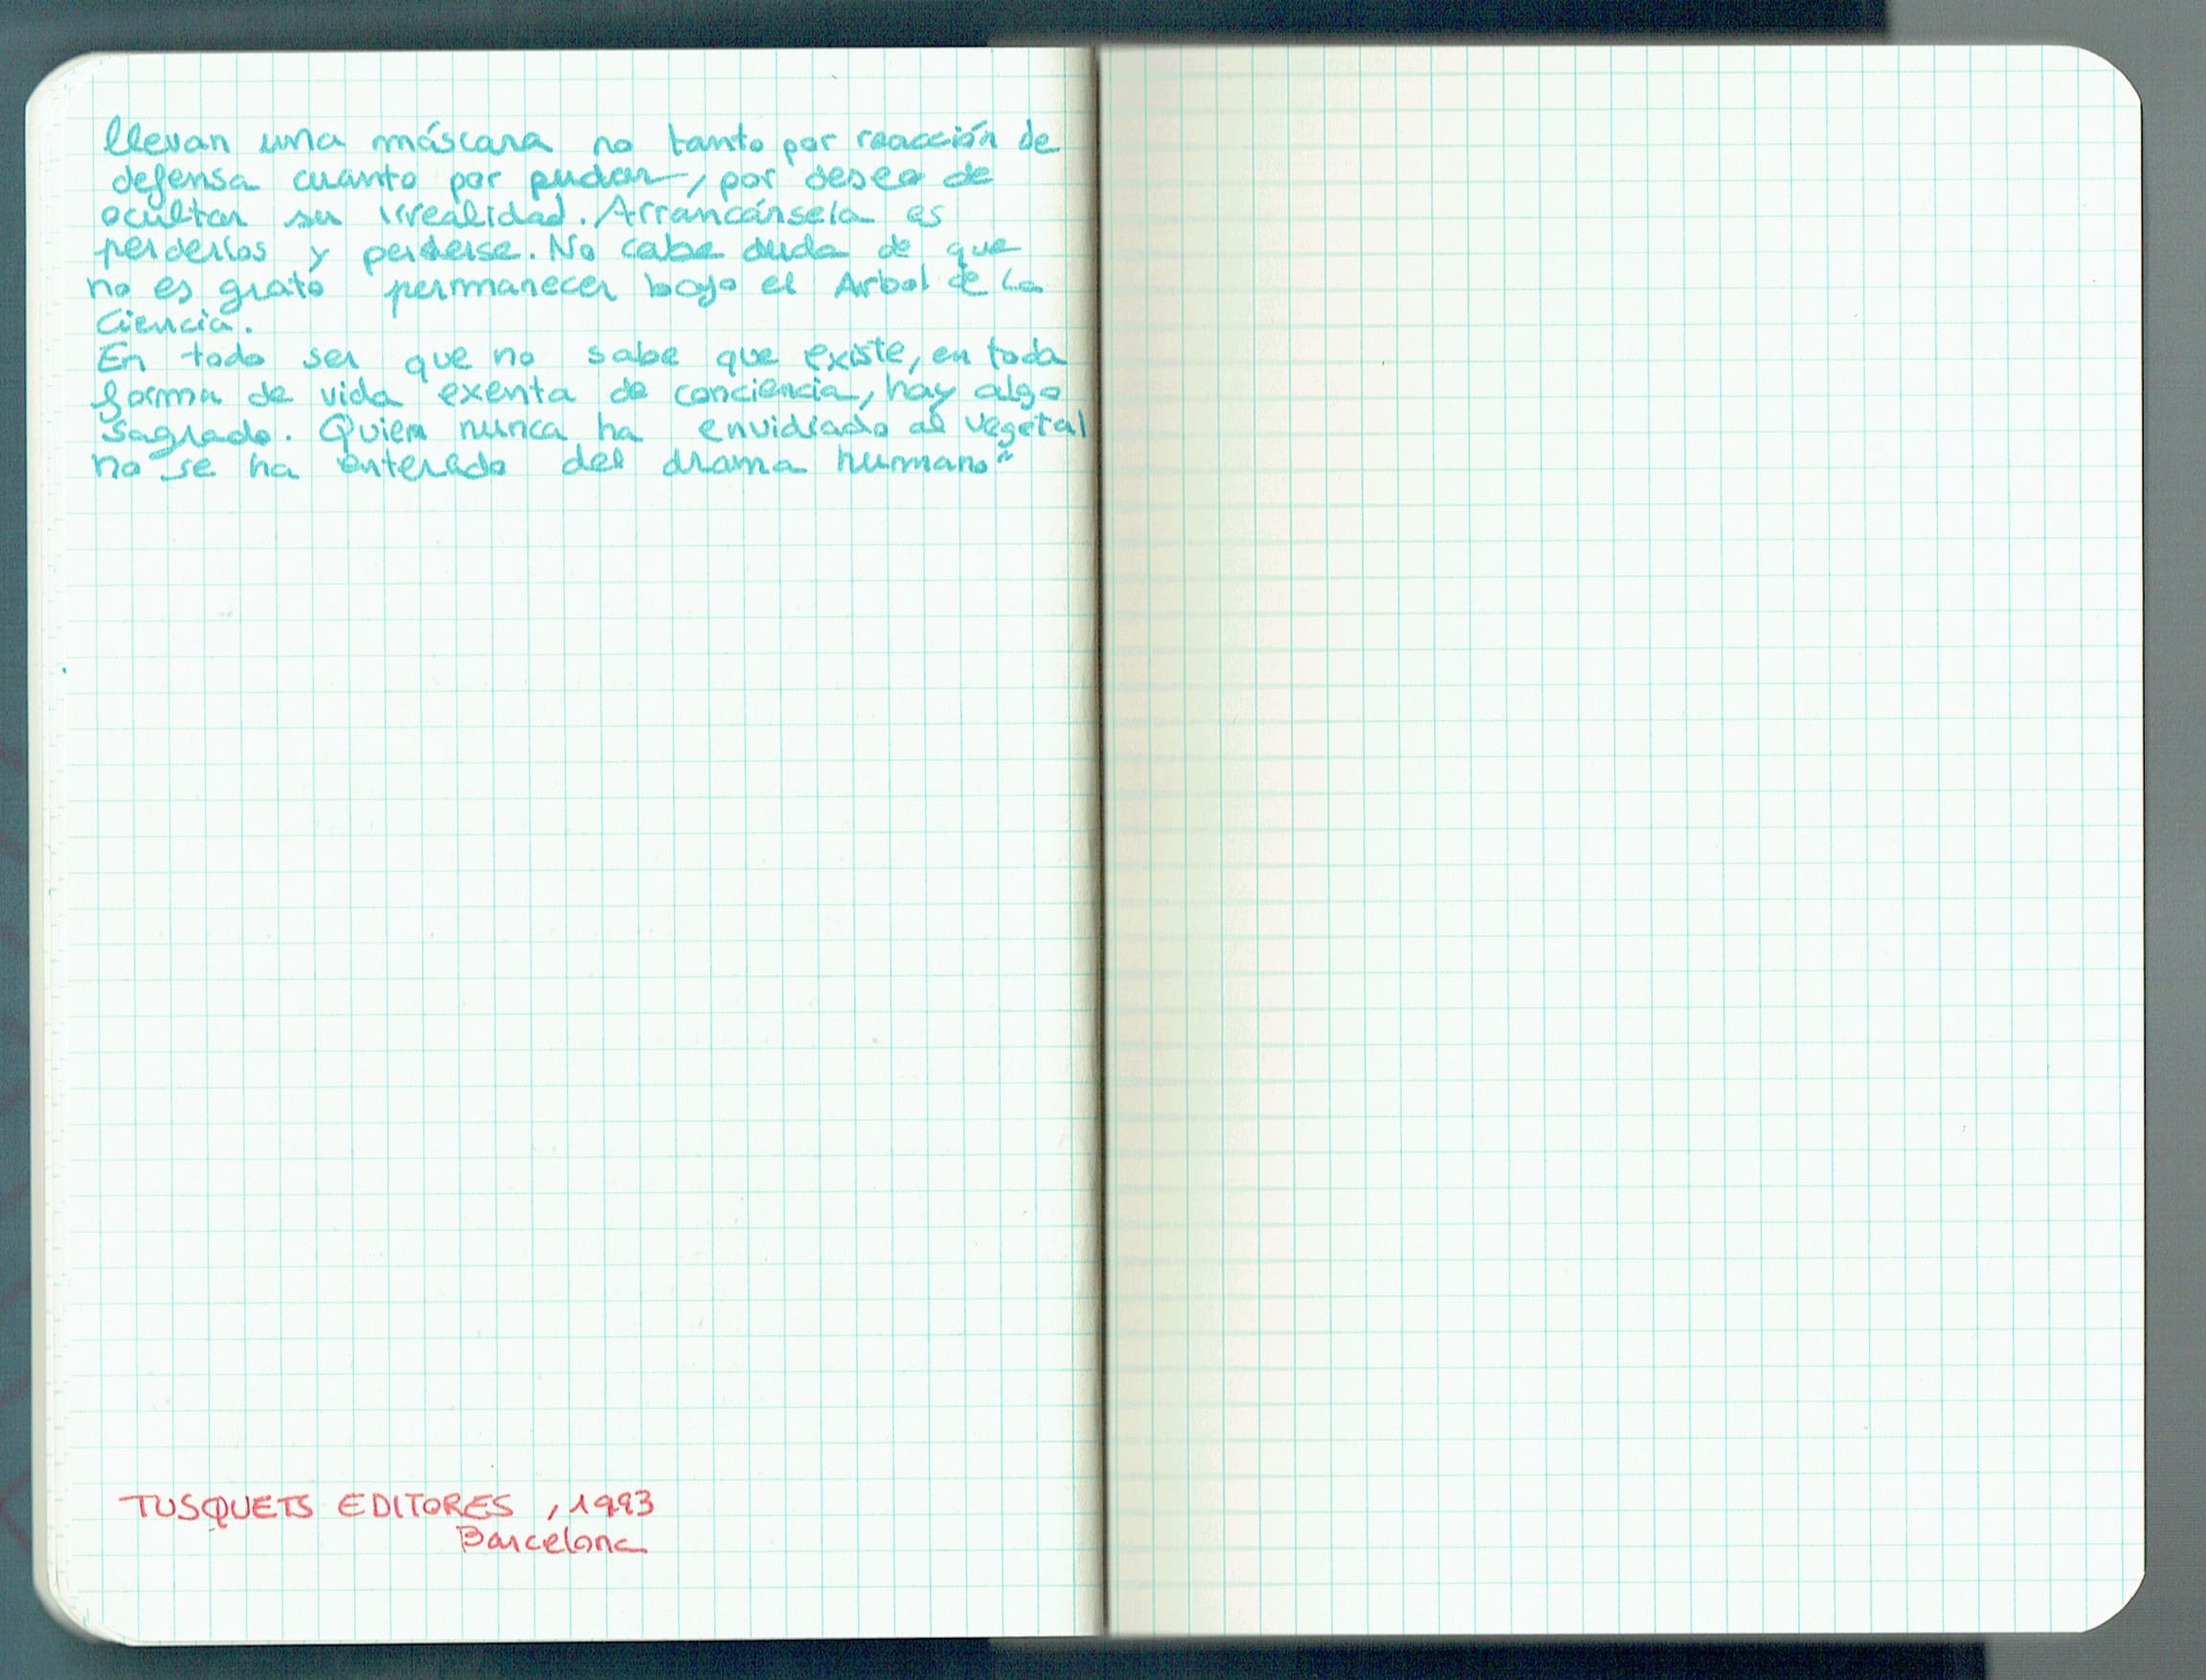 llevan una máscara no tanto por reacción de
defensa cuanto por pudor, por deseo de
ocultar su irrealidad. Arrancársela es
perderlos y perderse. No cabe duda de que
no es grato permanecer bajo el Arbol de la
Ciencia.
En todo ser que no sabe que existe, en toda
forma de vida exenta de conciencia, hay algo
sagrado. Quien nunca ha envidiado al vegetal
no se ha enterado del drama humano"
TUSQUETS EDITORES, 1993
Barcelona